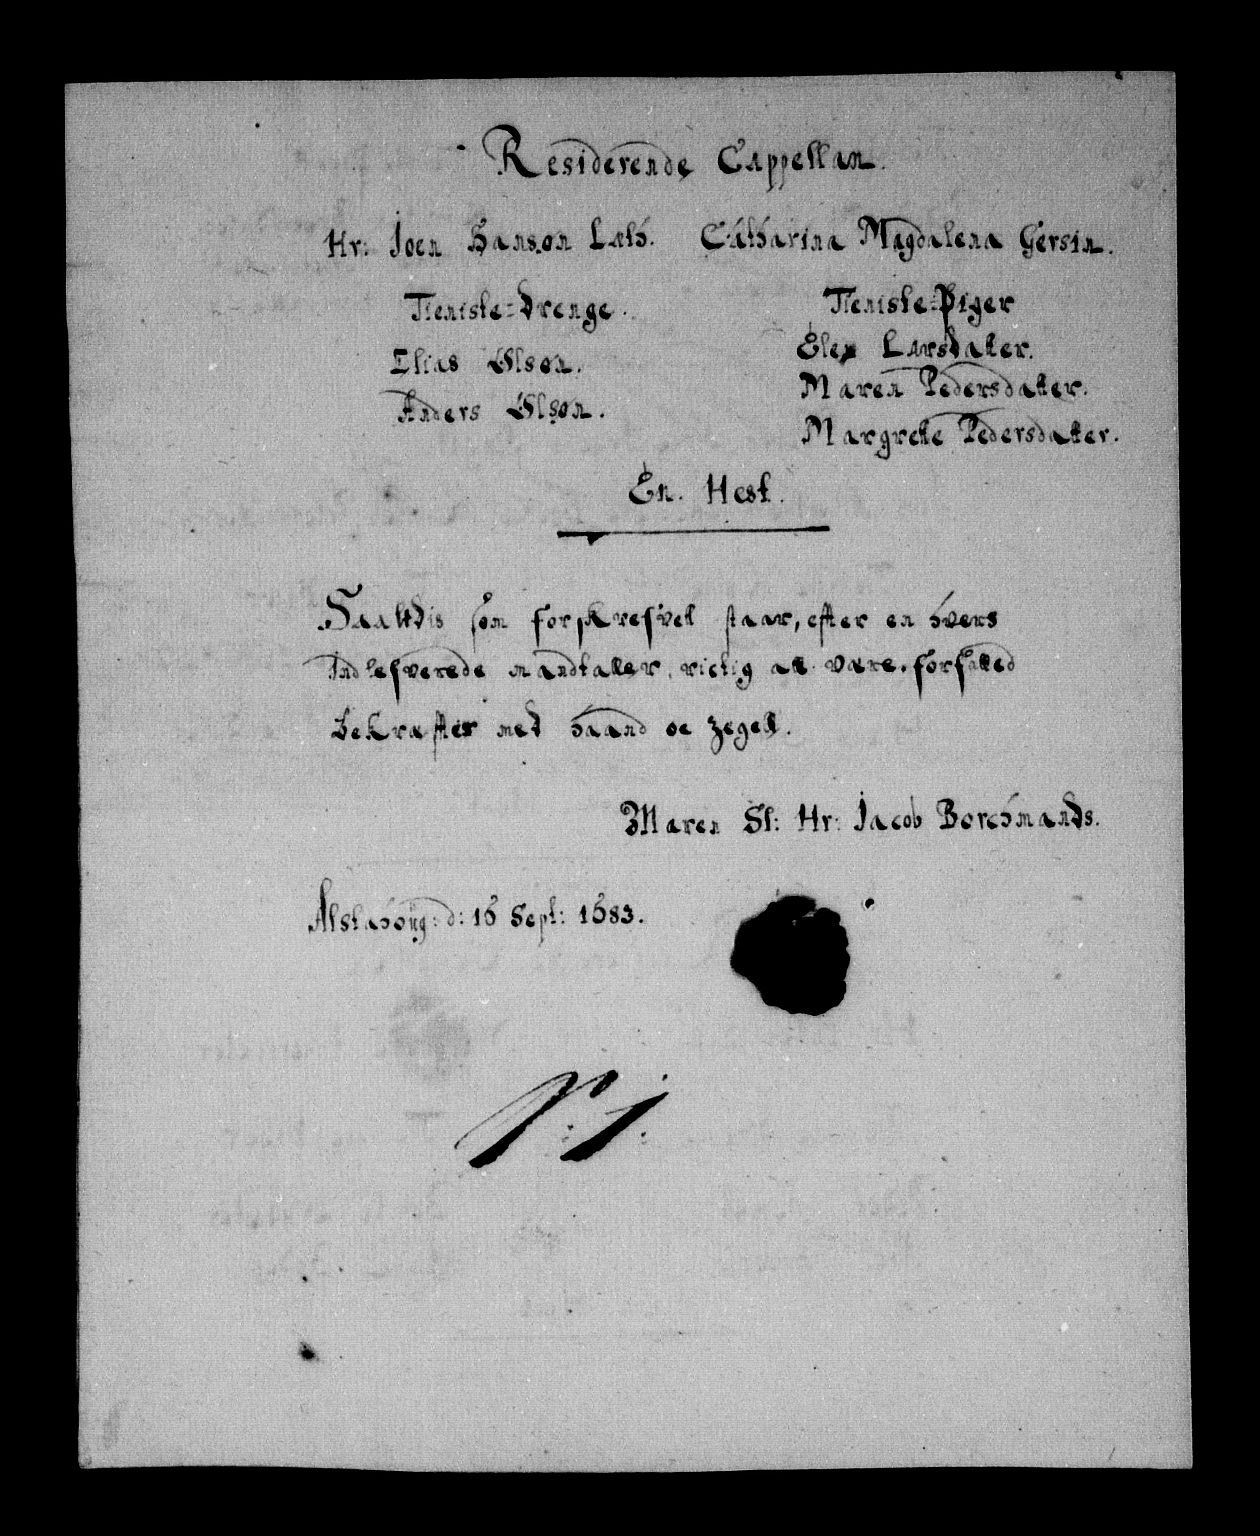 Residerende Cappellan.
Hr: Joen Hansøn Lath. Catharina Magdalena Gersin.
Tieniste-Drenge. Tieniste-Piger
Elias Olsøn. Elen Larsdatter.
Anders Olsøn. Maren Pedersdatter.
Margrete Pedersdatter.
En. Hest.
Saaledis som forskrefvet staar, efter en hvers
Indlefverede mandtaller, rictig at være.
Bekræftis med haand oc zegell.
Maren Sl: Hr: Jacob Borchmands.
Alstahoug: d: 16 Sept: 1683.